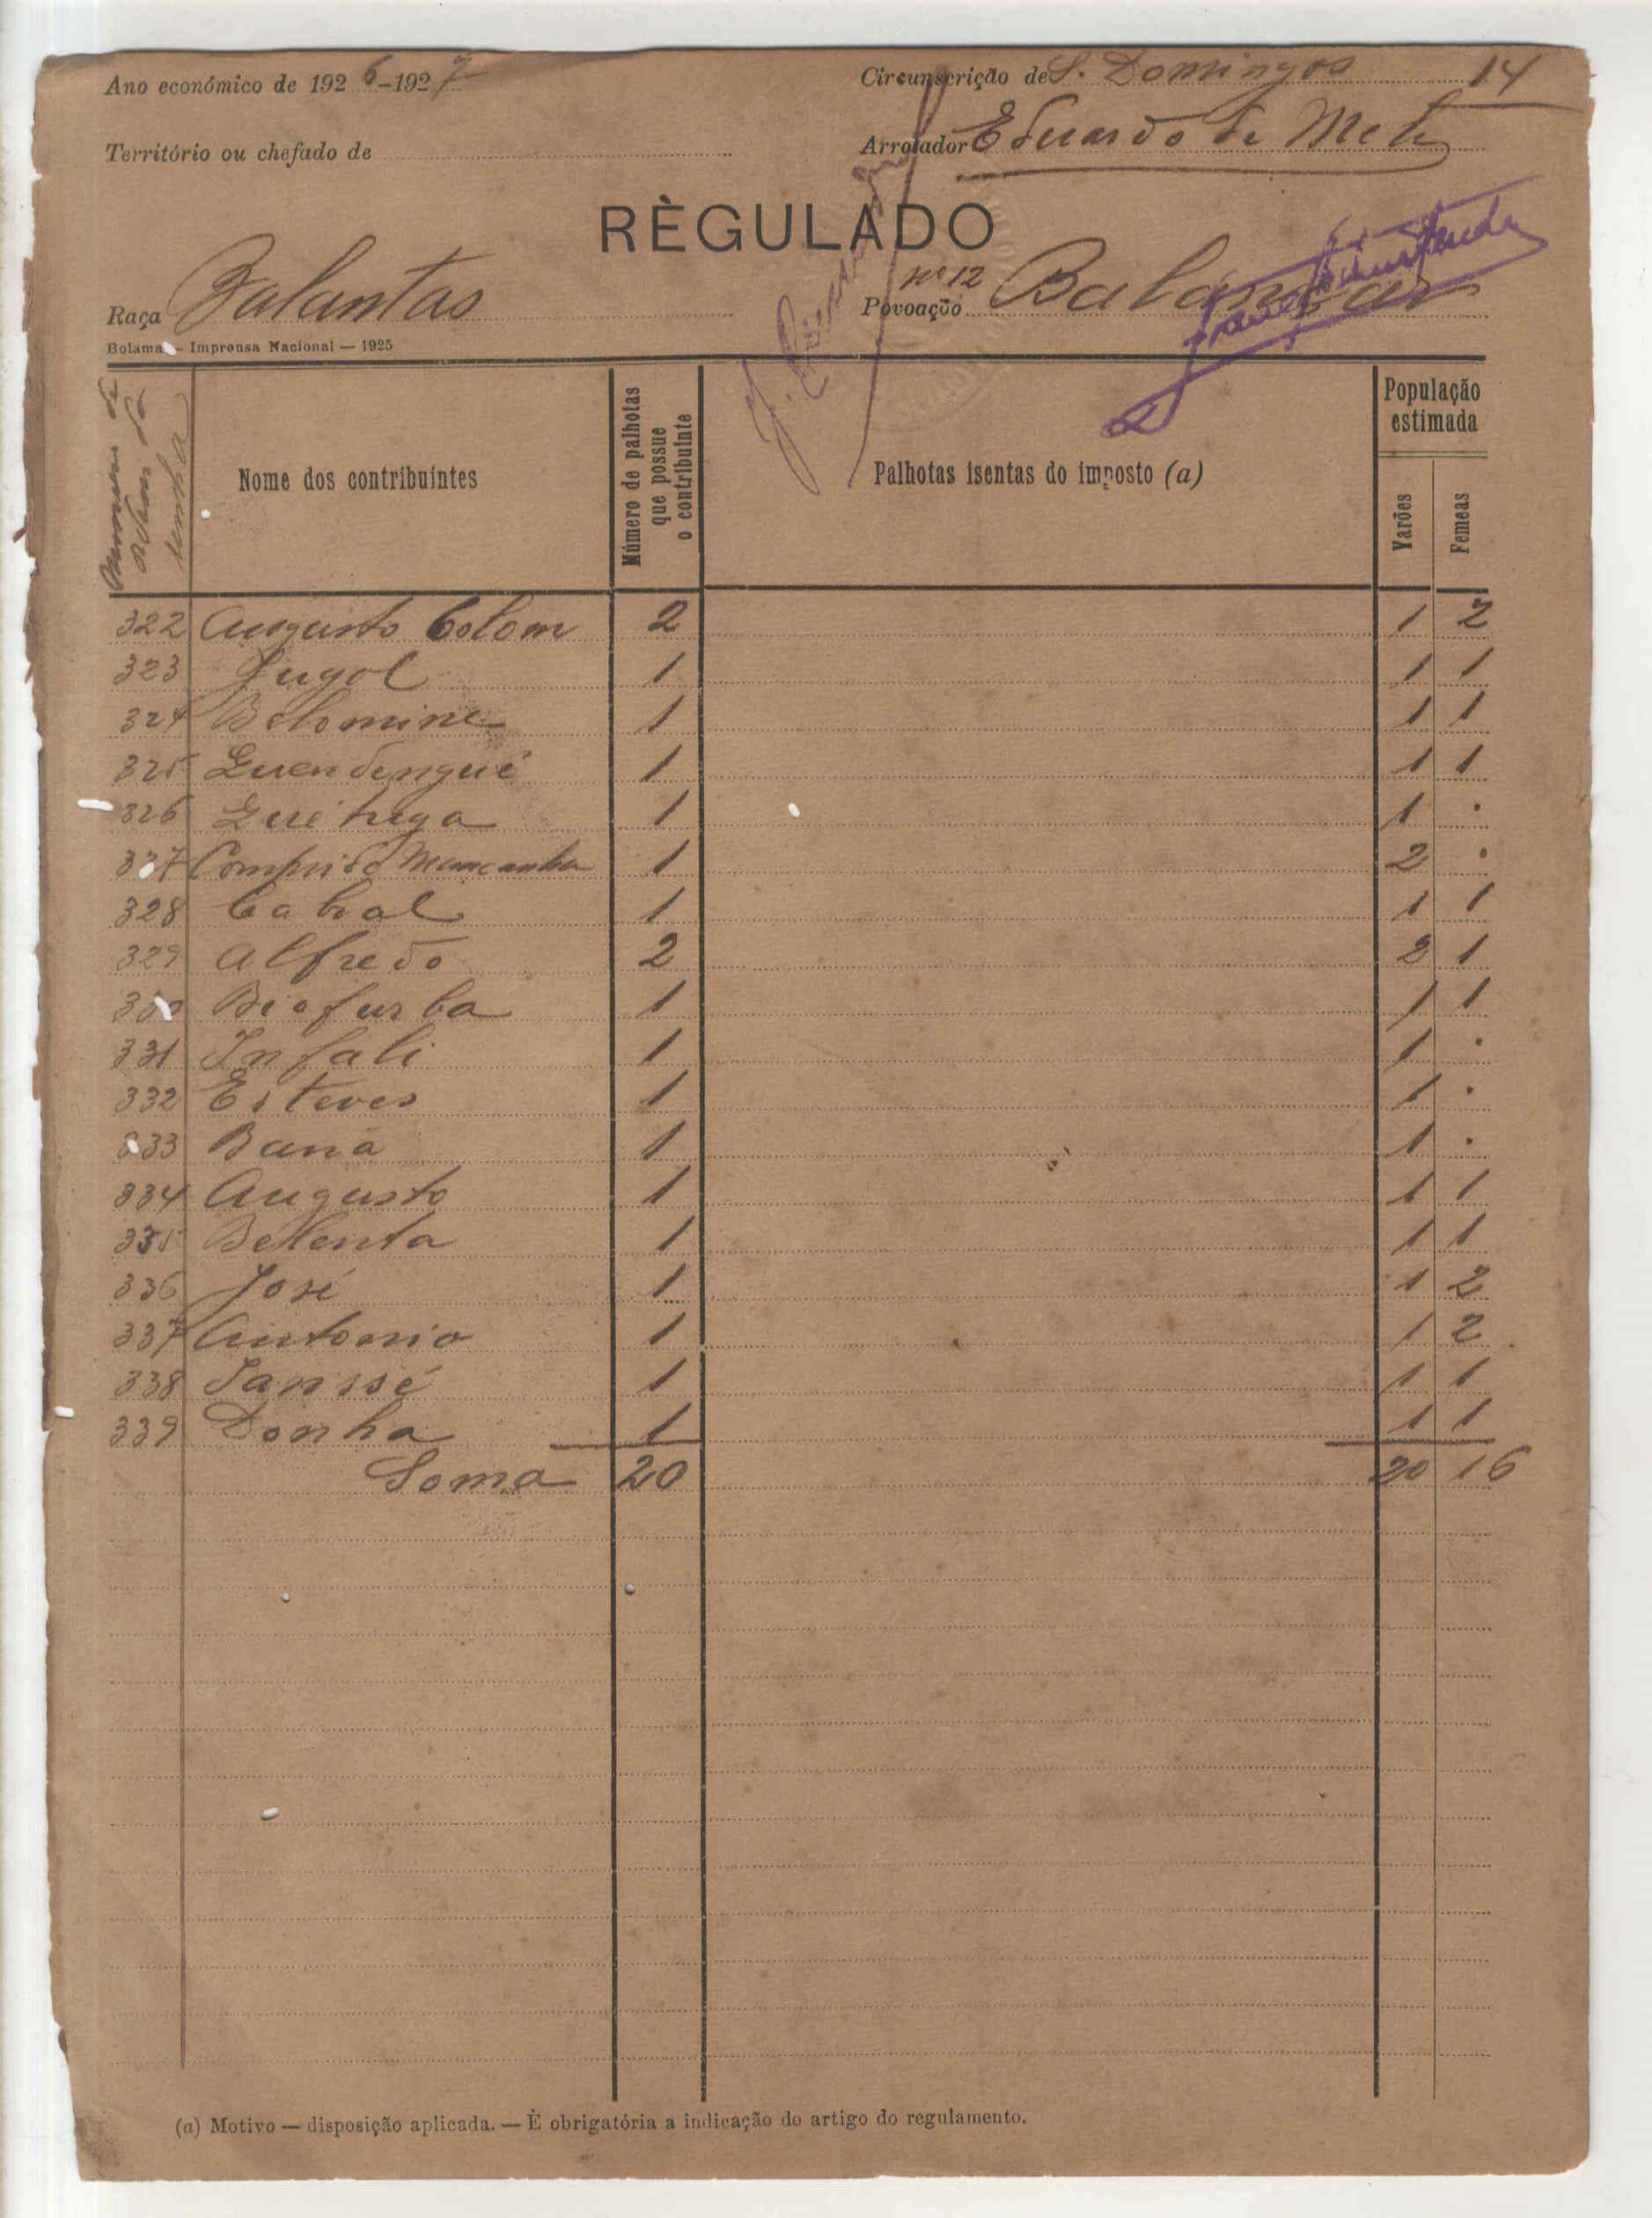 Ano económico de 1926-1927
Circunscrição de S. Domingos 14
Território ou chefado de
Arrolador Eduardo de
RÈGULADO
Raça Balantas
nº 12
Povoação
Bolama — Imprensa Nacional — 1925
Numero de
Nome dos contribuintes
Número de palhotas que possue o contribuinte
Palhotas isentas do imposto (a)
População estimada
Varões
Femeas
322 Augusto Colom 2 1 2
323 Jugol 1 1 1
324 Belomine 1 1 1
325 Quendengué 1 1 1
326 1 1 ·
327 Comprido Mancanha 1 2 ·
328 Cabral 1 1 1
329 Alfredo 2 2 1
330 Biofurba 1 1 1
331 Infali 1 1 ·
332 Esteves 1 1 ·
333 Baná 1 1 ·
334 Augusto 1 1 1
335 1 1 1
336 José 1 1 2
337 Antonio 1 1 2
338 Sanssé 1 1 1
339 Donha 1 1 1
Soma 20 20 16
(a) Motivo — disposição aplicada. — É obrigatória a indicação do artigo do regulamento.